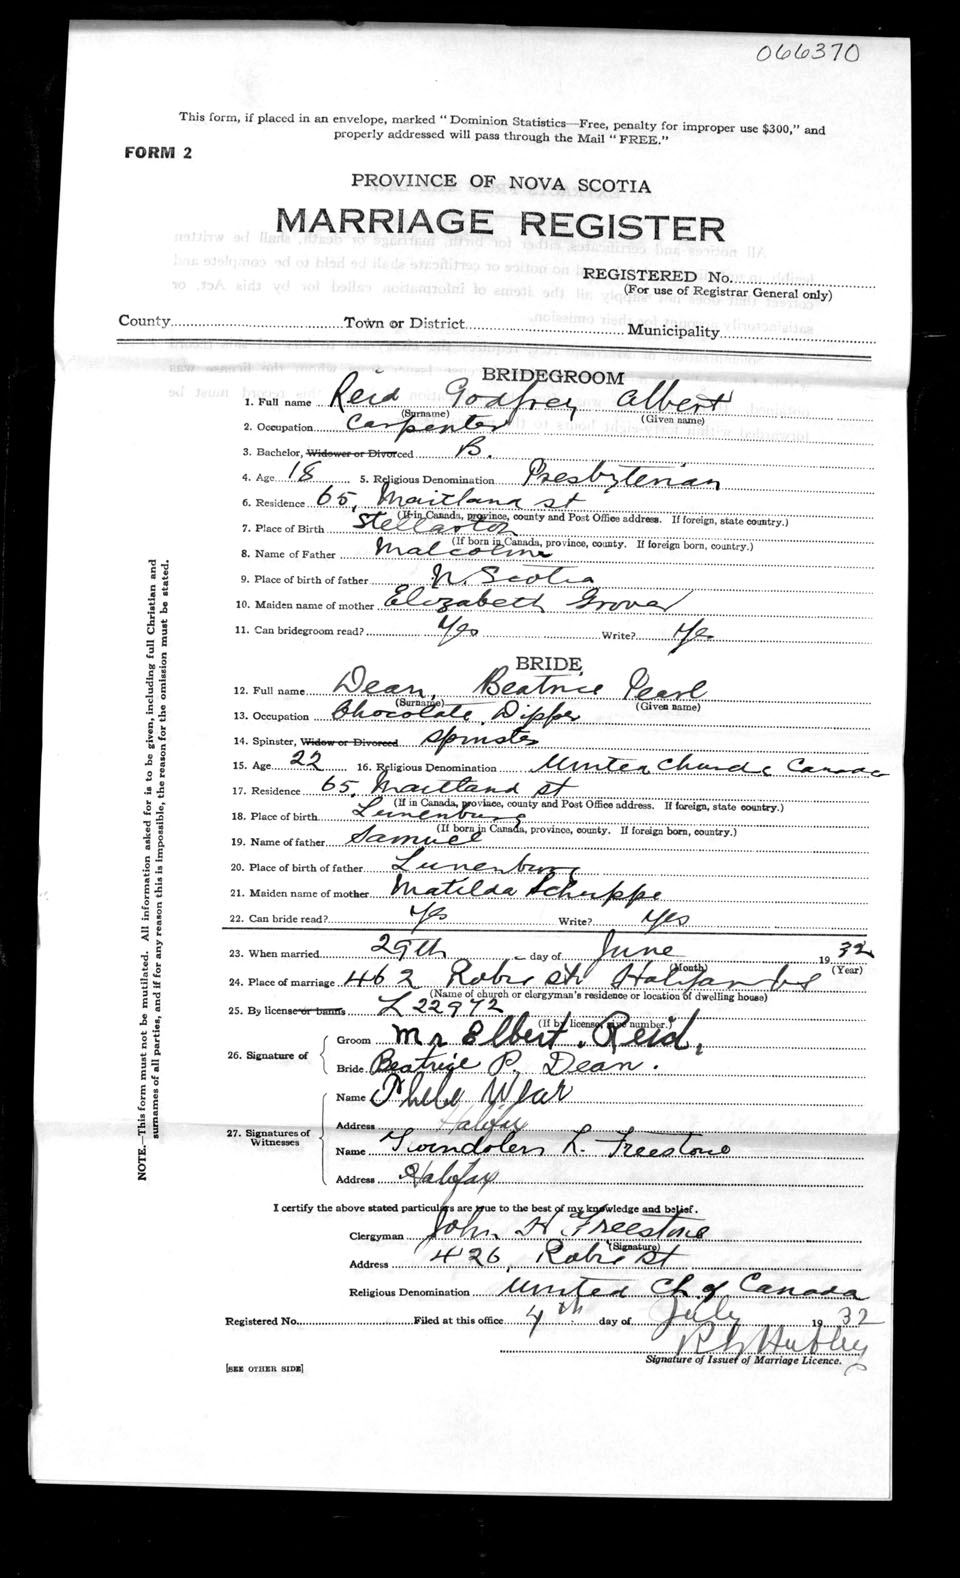 066370
This form, if placed in an envelope, marked "Dominion Statistics—Free, penalty for improper use $300," and
properly addressed will pass through the Mail "FREE."
FORM 2
PROVINCE OF NOVA SCOTIA
MARRIAGE REGISTER
REGISTERED No.
(For use of Registrar General only)
County Town or District Municipality
BRIDEGROOM
1. Full name Reid Godfrey Albert
(Surname) (Given name)
2. Occupation Carpenter
3. Bachelor, Widower or Divorced B.
4. Age 18 5. Religious Denomination Presbyterian
6. Residence 65, Maitland st
(If in Canada, province, county and Post Office address. If foreign, state country.)
7. Place of Birth Stellarton
(If born in Canada, province, county. If foreign born, country.)
8. Name of Father Malcolm
9. Place of birth of father N. Scotia
10. Maiden name of mother Elizabeth Grover
11. Can bridegroom read? Yes Write? Yes
BRIDE
12. Full name Dean, Beatrice Pearl
(Surname) (Given name)
13. Occupation Chocolate Dipper
14. Spinster, Widow or Divorced Spinster
15. Age 22 16. Religious Denomination United Church Canada
17. Residence 65, Maitland st
(If in Canada, province, county and Post Office address. If foreign, state country.)
18. Place of birth Lunenburg
(If born in Canada, province, county. If foreign born, country.)
19. Name of father Samuel
20. Place of birth of father Lunenburg
21. Maiden name of mother Matilda Schuppe
22. Can bride read? Yes Write? Yes
23. When married 29th day of June 1932
(Month) (Year)
24. Place of marriage 462 Robie St Halifax
(Name of church or clergyman's residence or location of dwelling house)
25. By license or banns L 22972
(If by license, give number.)
26. Signature of Groom Mr Elbert. Reid,
Bride Beatrice P. Dean.
27. Signatures of Witnesses Name Phebe Wear
Address Halifax
Name Gwindolen L. Freestone
Address Halifax
I certify the above stated particulars are true to the best of my knowledge and belief.
Clergyman John H Freestone
(Signature)
Address 426, Robie St
Religious Denomination United Ch. of Canada
Registered No. Filed at this office 4th day of July 1932
R Hubley
Signature of Issuer of Marriage Licence.
[SEE OTHER SIDE]
NOTE.—This form must not be mutilated. All information asked for is to be given, including full Christian and
surnames of all parties, and if for any reason this is impossible, the reason for the omission must be stated.